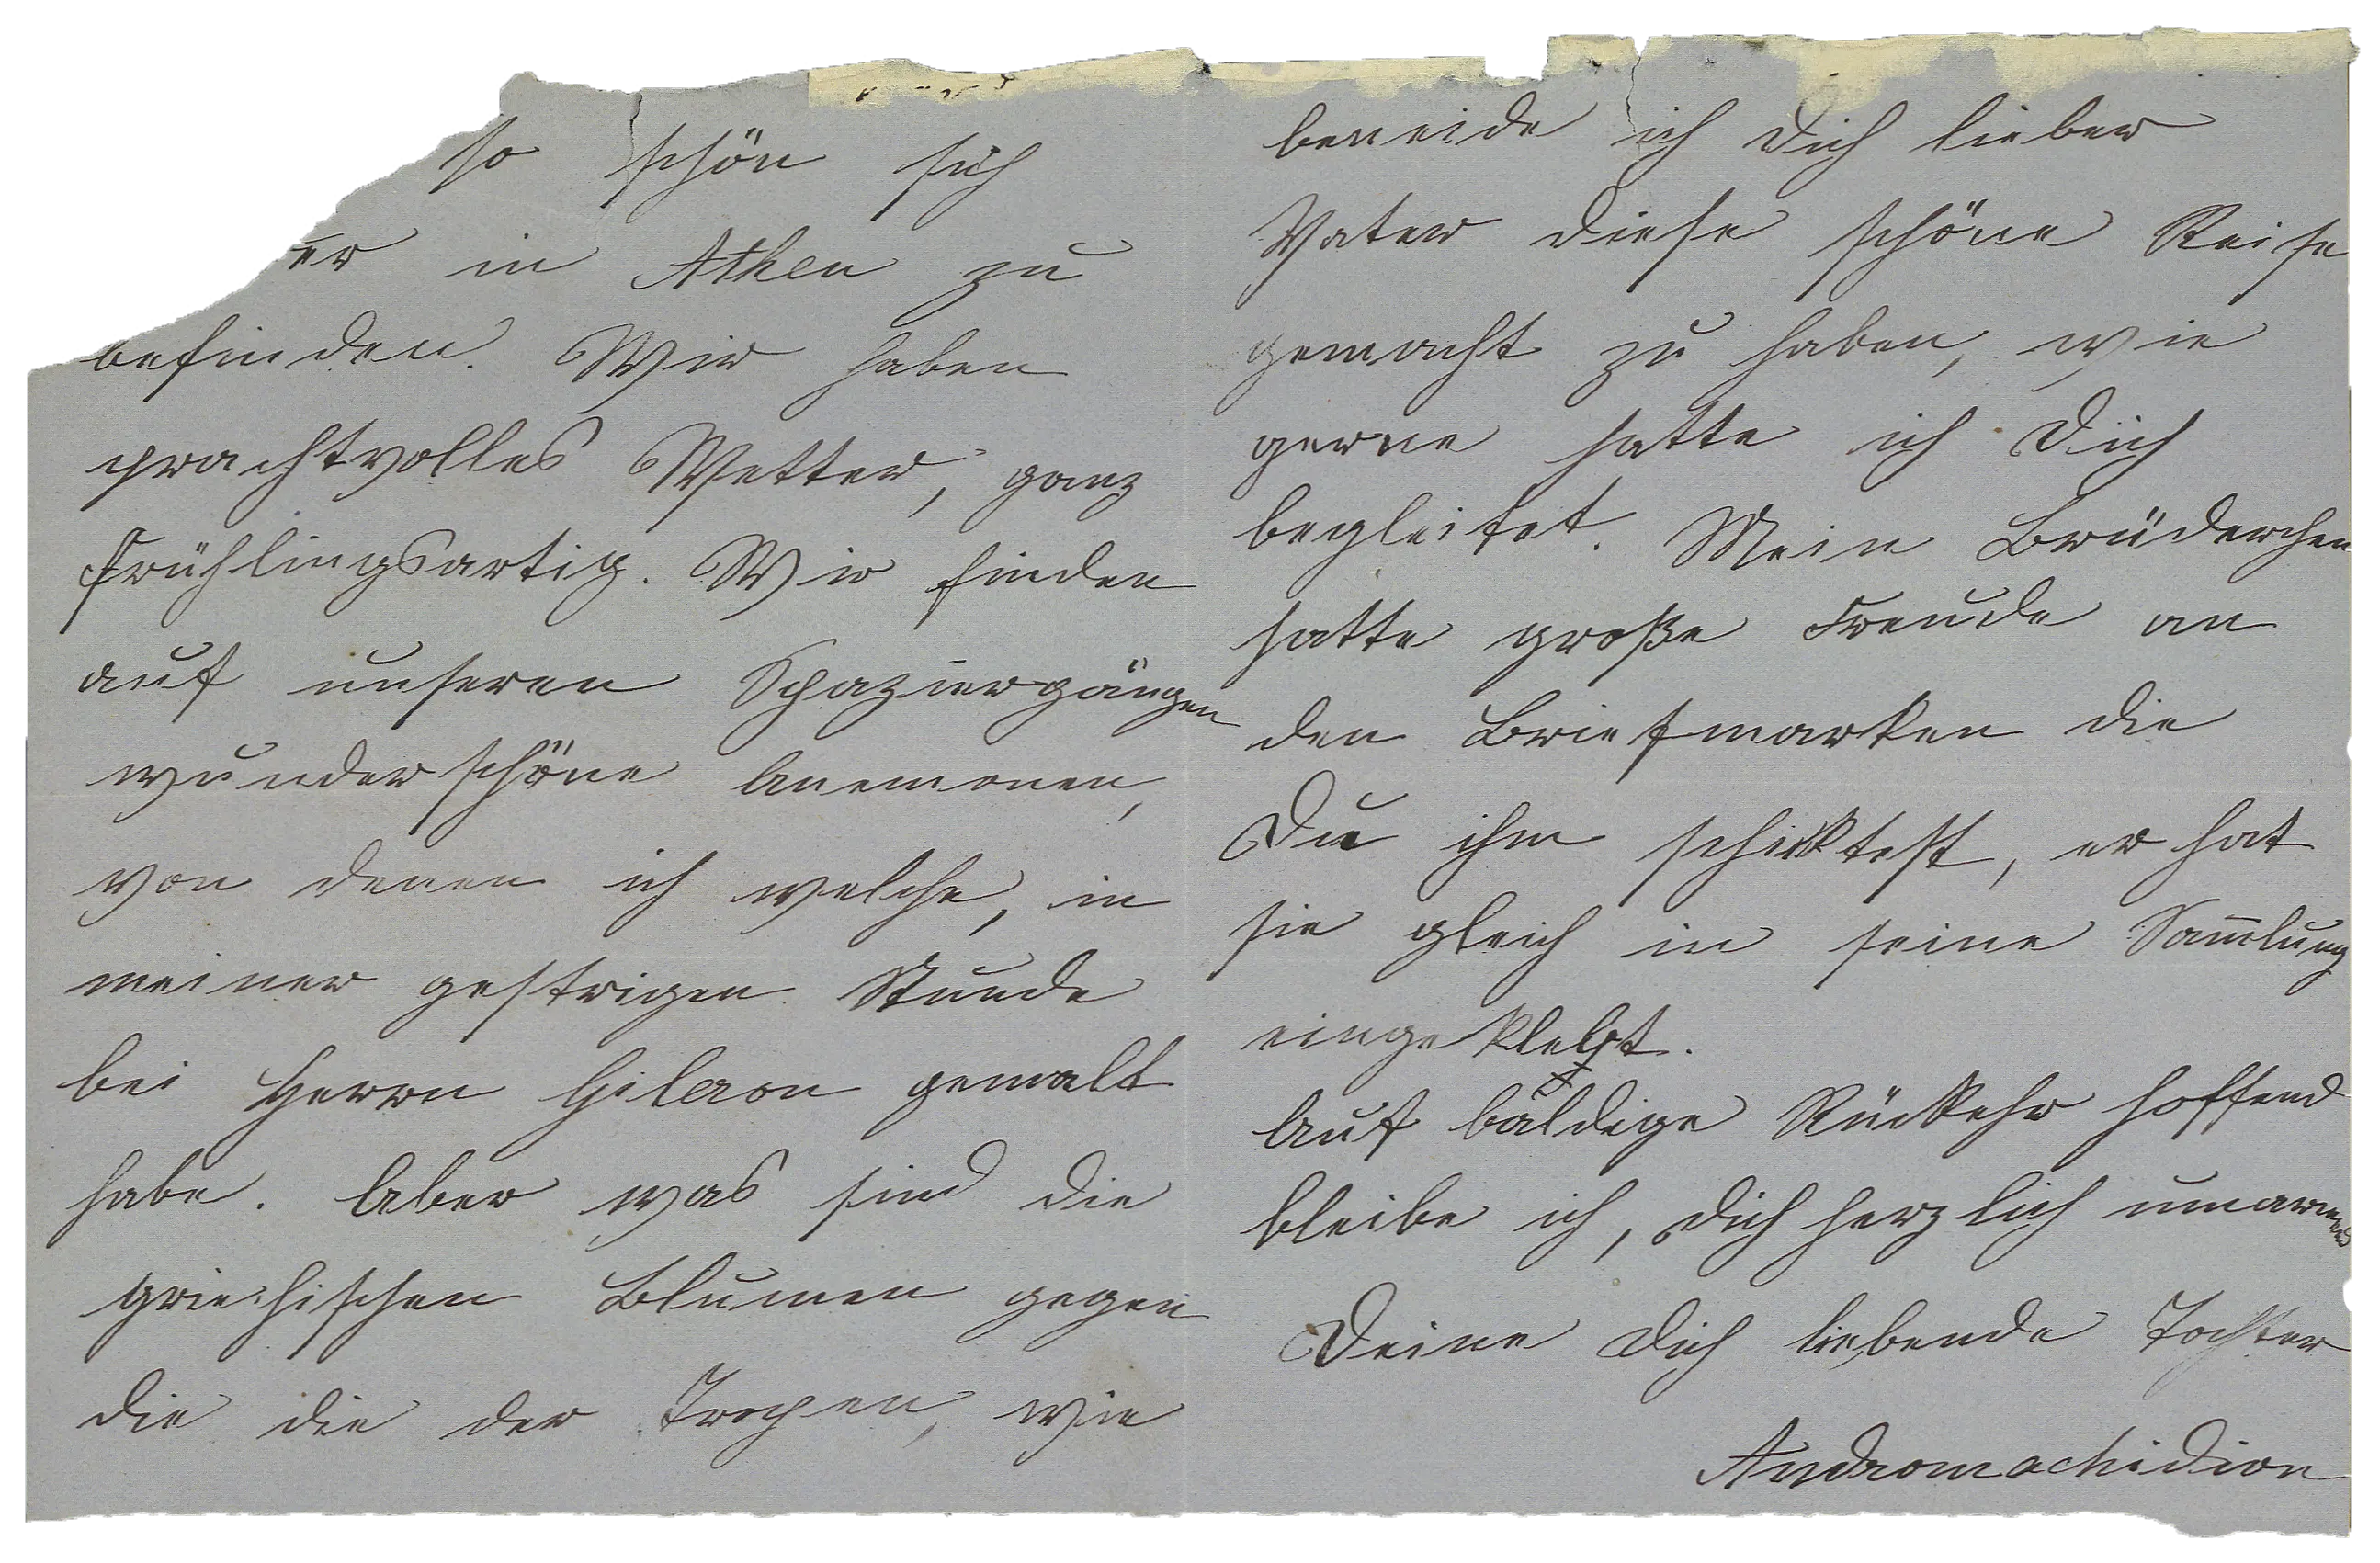 so schön sich
er in Athen zu
befinden. Wir haben
prachtvolles Wetter, ganz
frühlingsartig. Wir finden
auf unseren Spaziergängen
wunderschöne Anemonen,
von denen ich welche, in
meiner gestrigen Stunde
bei Herrn Gileron gemalt
habe. Aber was sind die
griechischen Blumen gegen
die die der Tropen, wie
beneide ich Dich lieber
Vater diese schöne Reise
gemacht zu haben, wie
gerne hatte ich Dich
begleitet. Mein Brüderchen
hatte große Freude an
den Briefmarken die
Du ihm schicktest, er hat
sie gleich in seine Sam̅lung
eingeklebt.
Auf baldige Rückkehr hoffend
bleibe ich, Dich herzlich umarmend
Deine Dich liebende Tochter
Andromachidion